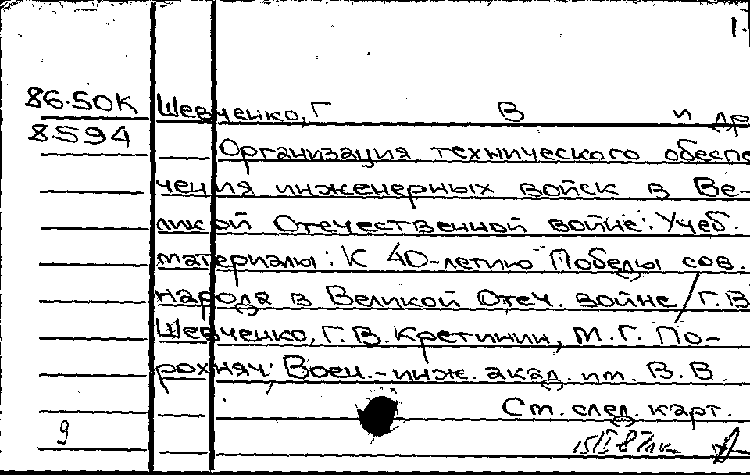 1.
86-50К Шевченко, Г В и др
8594
Организация технического обеспе
чения инженерных войск в Ве-
ликой Отечественной войне: Учеб.
материалы: К 40-летию Победы сов.
народа в Великой Отеч. войне / Г.В
Шевченко, Г.В. Кретинин, М.Г. По-
рохняч; Воен.-инж. акад. им. В.В
См. след. карт.
9